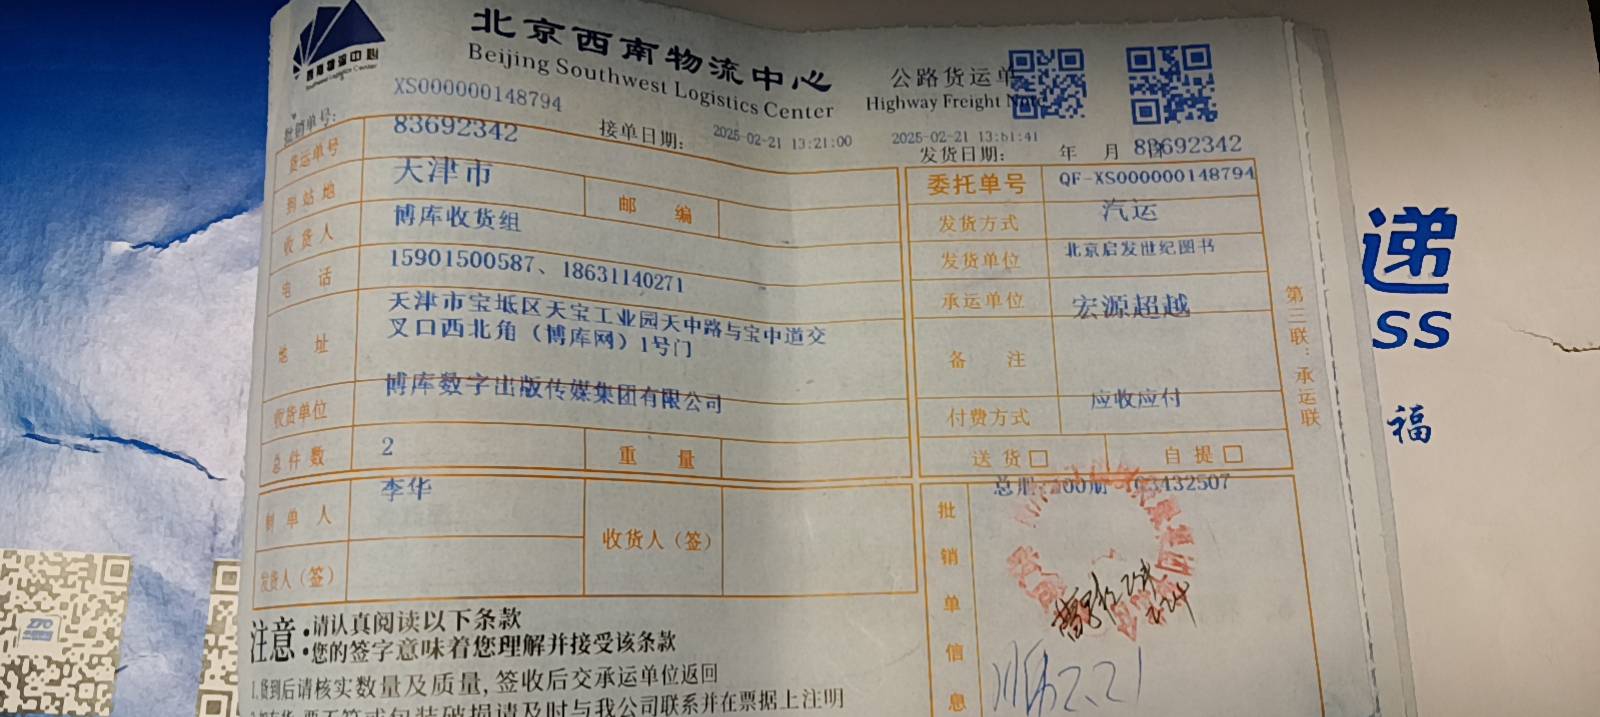 西南物流中心
Southwest Logistics Center
北京西南物流中心
Beijing Southwest Logistics Center
公路货运单
Highway Freight Note
批销单号:
XS000000148794
接单日期:
2025-02-21 13:21:00
2025-02-21 13:51:41
发货日期:
年 月 日
83692342
货运单号
83692342
到站地
天津市
邮 编
收货人
博库收货组
电 话
15901500587、18631140271
地 址
天津市宝坻区天宝工业园天中路与宝中道交
叉口西北角（博库网）1号门
收货单位
博库数字出版传媒集团有限公司
总件数
2
重 量
制单人
李华
收货人（签）
发货人（签）
委托单号
QF-XS000000148794
发货方式
汽运
发货单位
北京启发世纪图书
承运单位
宏源超越
备 注
付费方式
应收应付
送货□
自提□
批销单信息
总册:200册
63432507
2.24
2.21
第三联：承运联
注意:
请认真阅读以下条款
您的签字意味着您理解并接受该条款
1.货到后请核实数量及质量,签收后交承运单位返回
损请及时与我公司联系并在票据上注明
递
SS
福